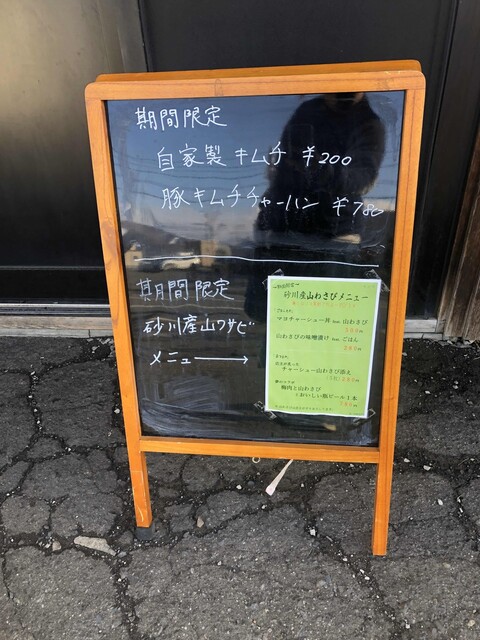 期間限定
自家製 キムチ ¥200
豚キムチチャーハン ¥780
期間限定
砂川産山ワサビ
メニュー→
砂川産山わさびメニュー
マヨチャーシュー丼 山わさび
山わさびの味噌漬け ごはん
チャーシュー山わさび添え
梅肉と山わさび
とおいしい瓶ビール1本